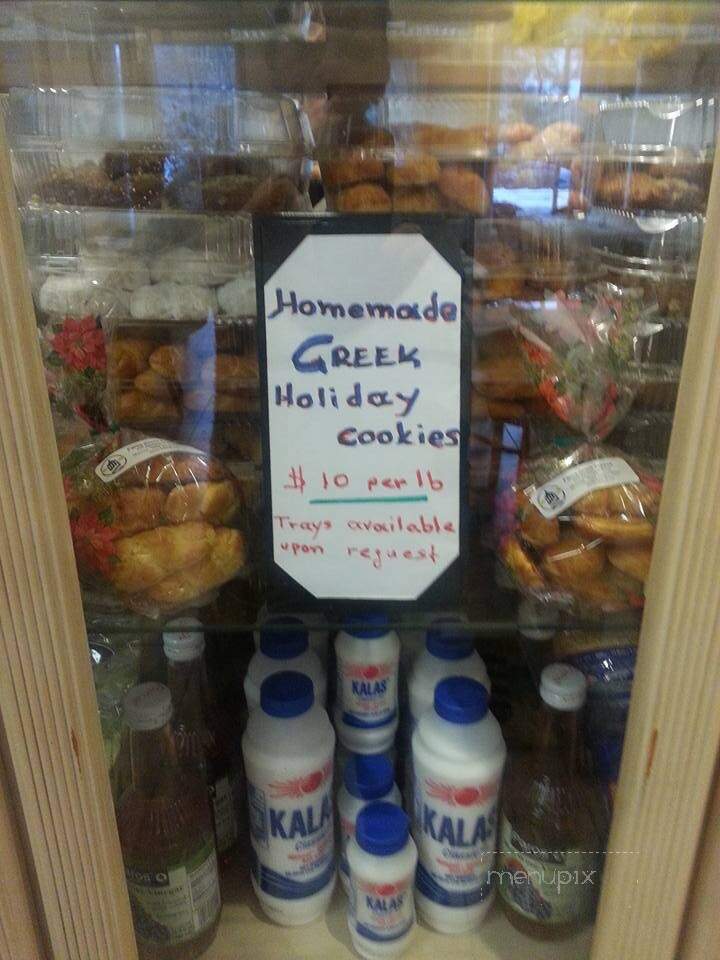 Homemade
GREEK
Holiday
cookies
$ 10 per lb
Trays available
upon request
KALAS
KALAS
KALAS
KALAS
menupix